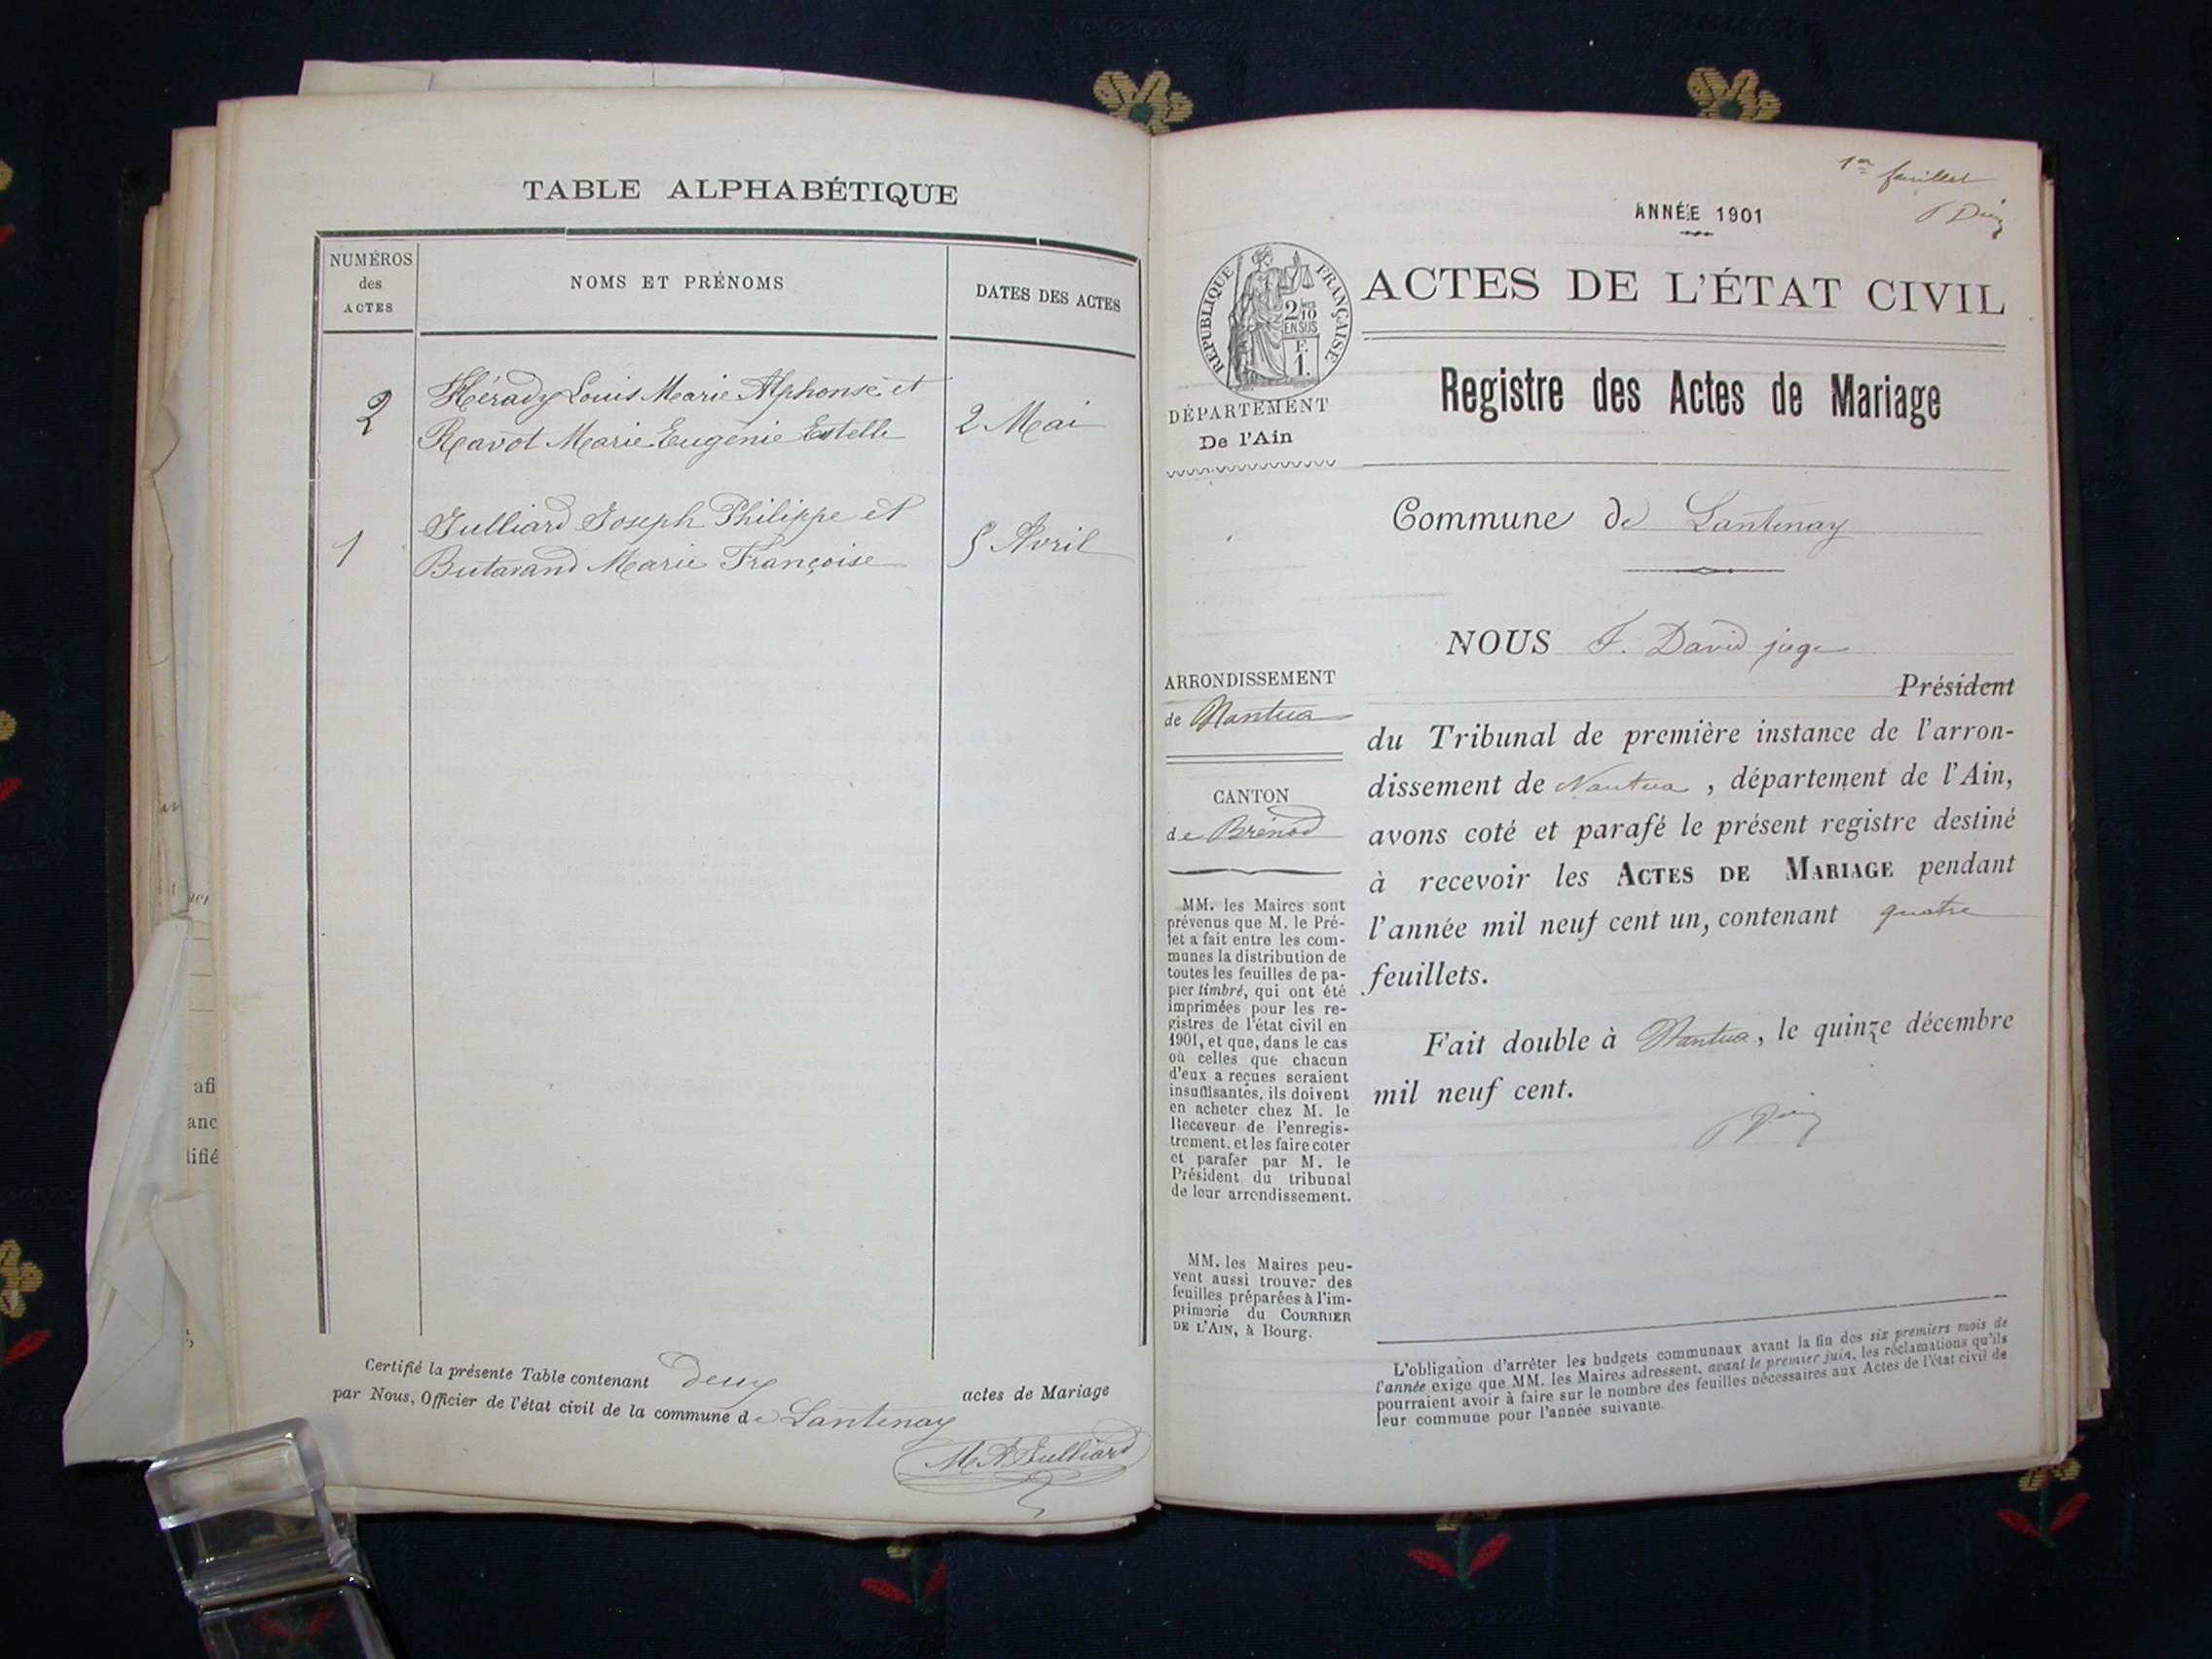 TABLE ALPHABÉTIQUE
NUMÉROS
des
ACTES
NOMS ET PRÉNOMS
DATES DES ACTES
2
Hérady Louis Marie Alphonse et
Ravot Marie Eugénie Estelle
2 Mai
1
Julliard Joseph Philippe et
Butavand Marie Françoise
5 Avril
Certifié la présente Table contenant deux actes de Mariage
par Nous, Officier de l'état civil de la commune de Lantenay
Julliard
1er feuillet
ANNÉE 1901
RÉPUBLIQUE FRANÇAISE
2/10
EN SUS
F.
1.
ACTES DE L'ÉTAT CIVIL
Registre des Actes de Mariage
DÉPARTEMENT
De l'Ain
Commune de Lantenay
NOUS F. David juge
Président
ARRONDISSEMENT
de Nantua
CANTON
de Brénod
du Tribunal de première instance de l'arron-
dissement de Nantua, département de l'Ain,
avons coté et parafé le présent registre destiné
à recevoir les ACTES DE MARIAGE pendant
l'année mil neuf cent un, contenant quatre
feuillets.
Fait double à Nantua, le quinze décembre
mil neuf cent.
MM. les Maires sont
prévenus que M. le Pré-
fet a fait entre les com-
munes la distribution de
toutes les feuilles de pa-
pier timbré, qui ont été
imprimées pour les re-
gistres de l'état civil en
1901, et que, dans le cas
où celles que chacun
d'eux a reçues seraient
insuffisantes, ils doivent
en acheter chez M. le
Receveur de l'enregis-
trement, et les faire coter
et parafer par M. le
Président du tribunal
de leur arrondissement.
MM. les Maires peu-
vent aussi trouver des
feuilles préparées à l'im-
primerie du COURRIER
DE L'AIN, à Bourg.
L'obligation d'arrêter les budgets communaux avant la fin des six premiers mois de
l'année exige que MM. les Maires adressent, avant le premier juin, les réclamations qu'ils
pourraient avoir à faire sur le nombre des feuilles nécessaires aux Actes de l'état civil de
leur commune pour l'année suivante.
afi
anc
lifié